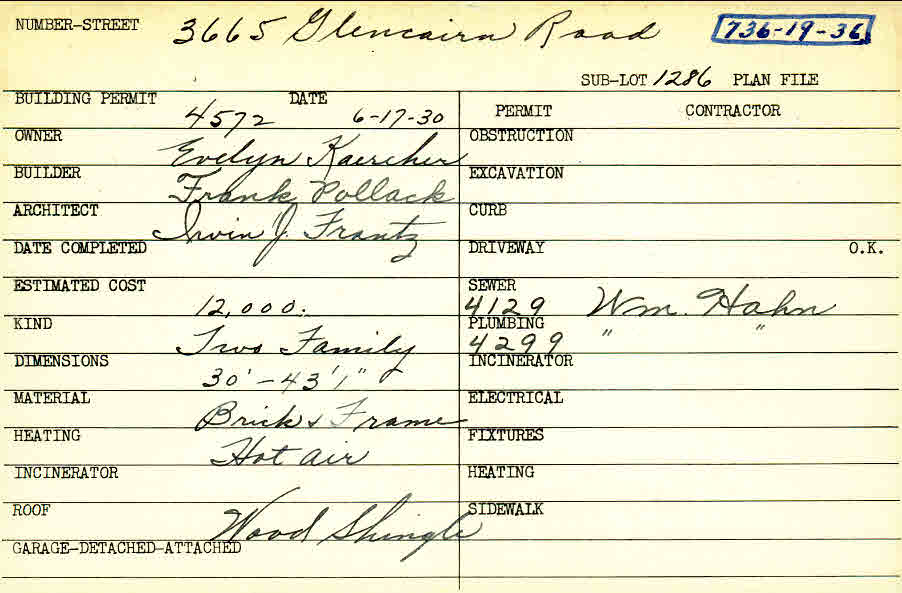 NUMBER-STREET 3665 Glencairn Road 736-19-36
SUB-LOT 1286 PLAN FILE
BUILDING PERMIT 4572 DATE 6-17-30
OWNER Evelyn Kaercher
BUILDER Frank Pollack
ARCHITECT Irvin J. Frantz
DATE COMPLETED
ESTIMATED COST 12,000.
KIND Two Family
DIMENSIONS 30' - 43'1"
MATERIAL Brick & Frame
HEATING Hot air
INCINERATOR
ROOF Wood Shingle
GARAGE-DETACHED-ATTACHED
PERMIT CONTRACTOR
OBSTRUCTION
EXCAVATION
CURB
DRIVEWAY O.K.
SEWER
4129 Wm. Hahn
PLUMBING
4299 " "
INCINERATOR
ELECTRICAL
FIXTURES
HEATING
SIDEWALK